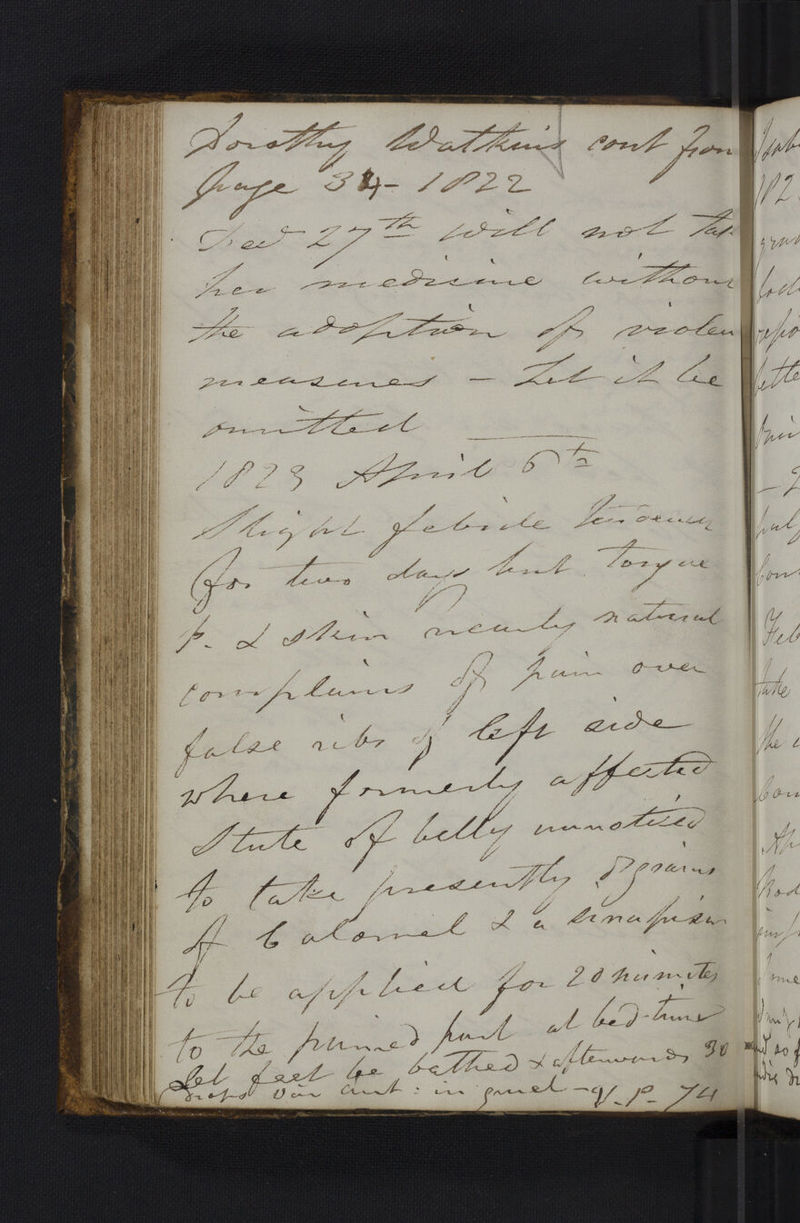 Dorothy Watkins cont from
page 34 - 1822
27th will not tak
her medicine without
the adoption of violen
measures - Let it be
omitted
1823 April 6th
Slight febrile
for two days but tongue
p. & skin nearly natural
complains of pain over
false ribs of left side
where formerly affected
State of belly unnoticed
to take presently grains
of Calomel & a sinapism
to be applied for 20 minutes
to the pained part at bed-time
Let feet be bathed & afterwards 30
drops Vin Ant: in gruel - p- 74